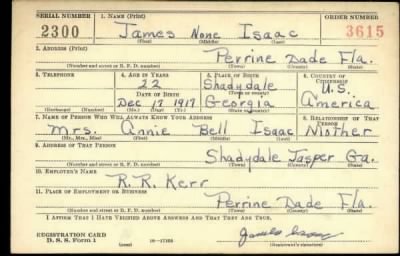 SERIAL NUMBER 1. NAME (Print) ORDER NUMBER
2300 James None Isaac 3615
(First) (Middle) (Last)
2. ADDRESS (Print)
Perrine Dade Fla.
(Number and street or R. F. D. number) (Town) (County) (State)
3. TELEPHONE 4. AGE IN YEARS 5. PLACE OF BIRTH 6. COUNTRY OF CITIZENSHIP
22 Shadydale U.S.
DATE OF BIRTH (Town or county)
Dec 17 1917 Georgia America
(Exchange) (Number) (Mo.) (Day) (Yr.) (State or country)
7. NAME OF PERSON WHO WILL ALWAYS KNOW YOUR ADDRESS 8. RELATIONSHIP OF THAT PERSON
Mrs. Annie Bell Isaac Mother
(Mr., Mrs., Miss) (First) (Middle) (Last)
9. ADDRESS OF THAT PERSON
Shadydale Jasper Ga.
(Number and street or R. F. D. number) (Town) (County) (State)
10. EMPLOYER'S NAME
R. R. Kerr
11. PLACE OF EMPLOYMENT OR BUSINESS
Perrine Dade Fla.
(Number and street or R. F. D. number) (Town) (County) (State)
I AFFIRM THAT I HAVE VERIFIED ABOVE ANSWERS AND THAT THEY ARE TRUE.
REGISTRATION CARD James Isaac
D. S. S. Form 1 (over) (Registrant's signature)